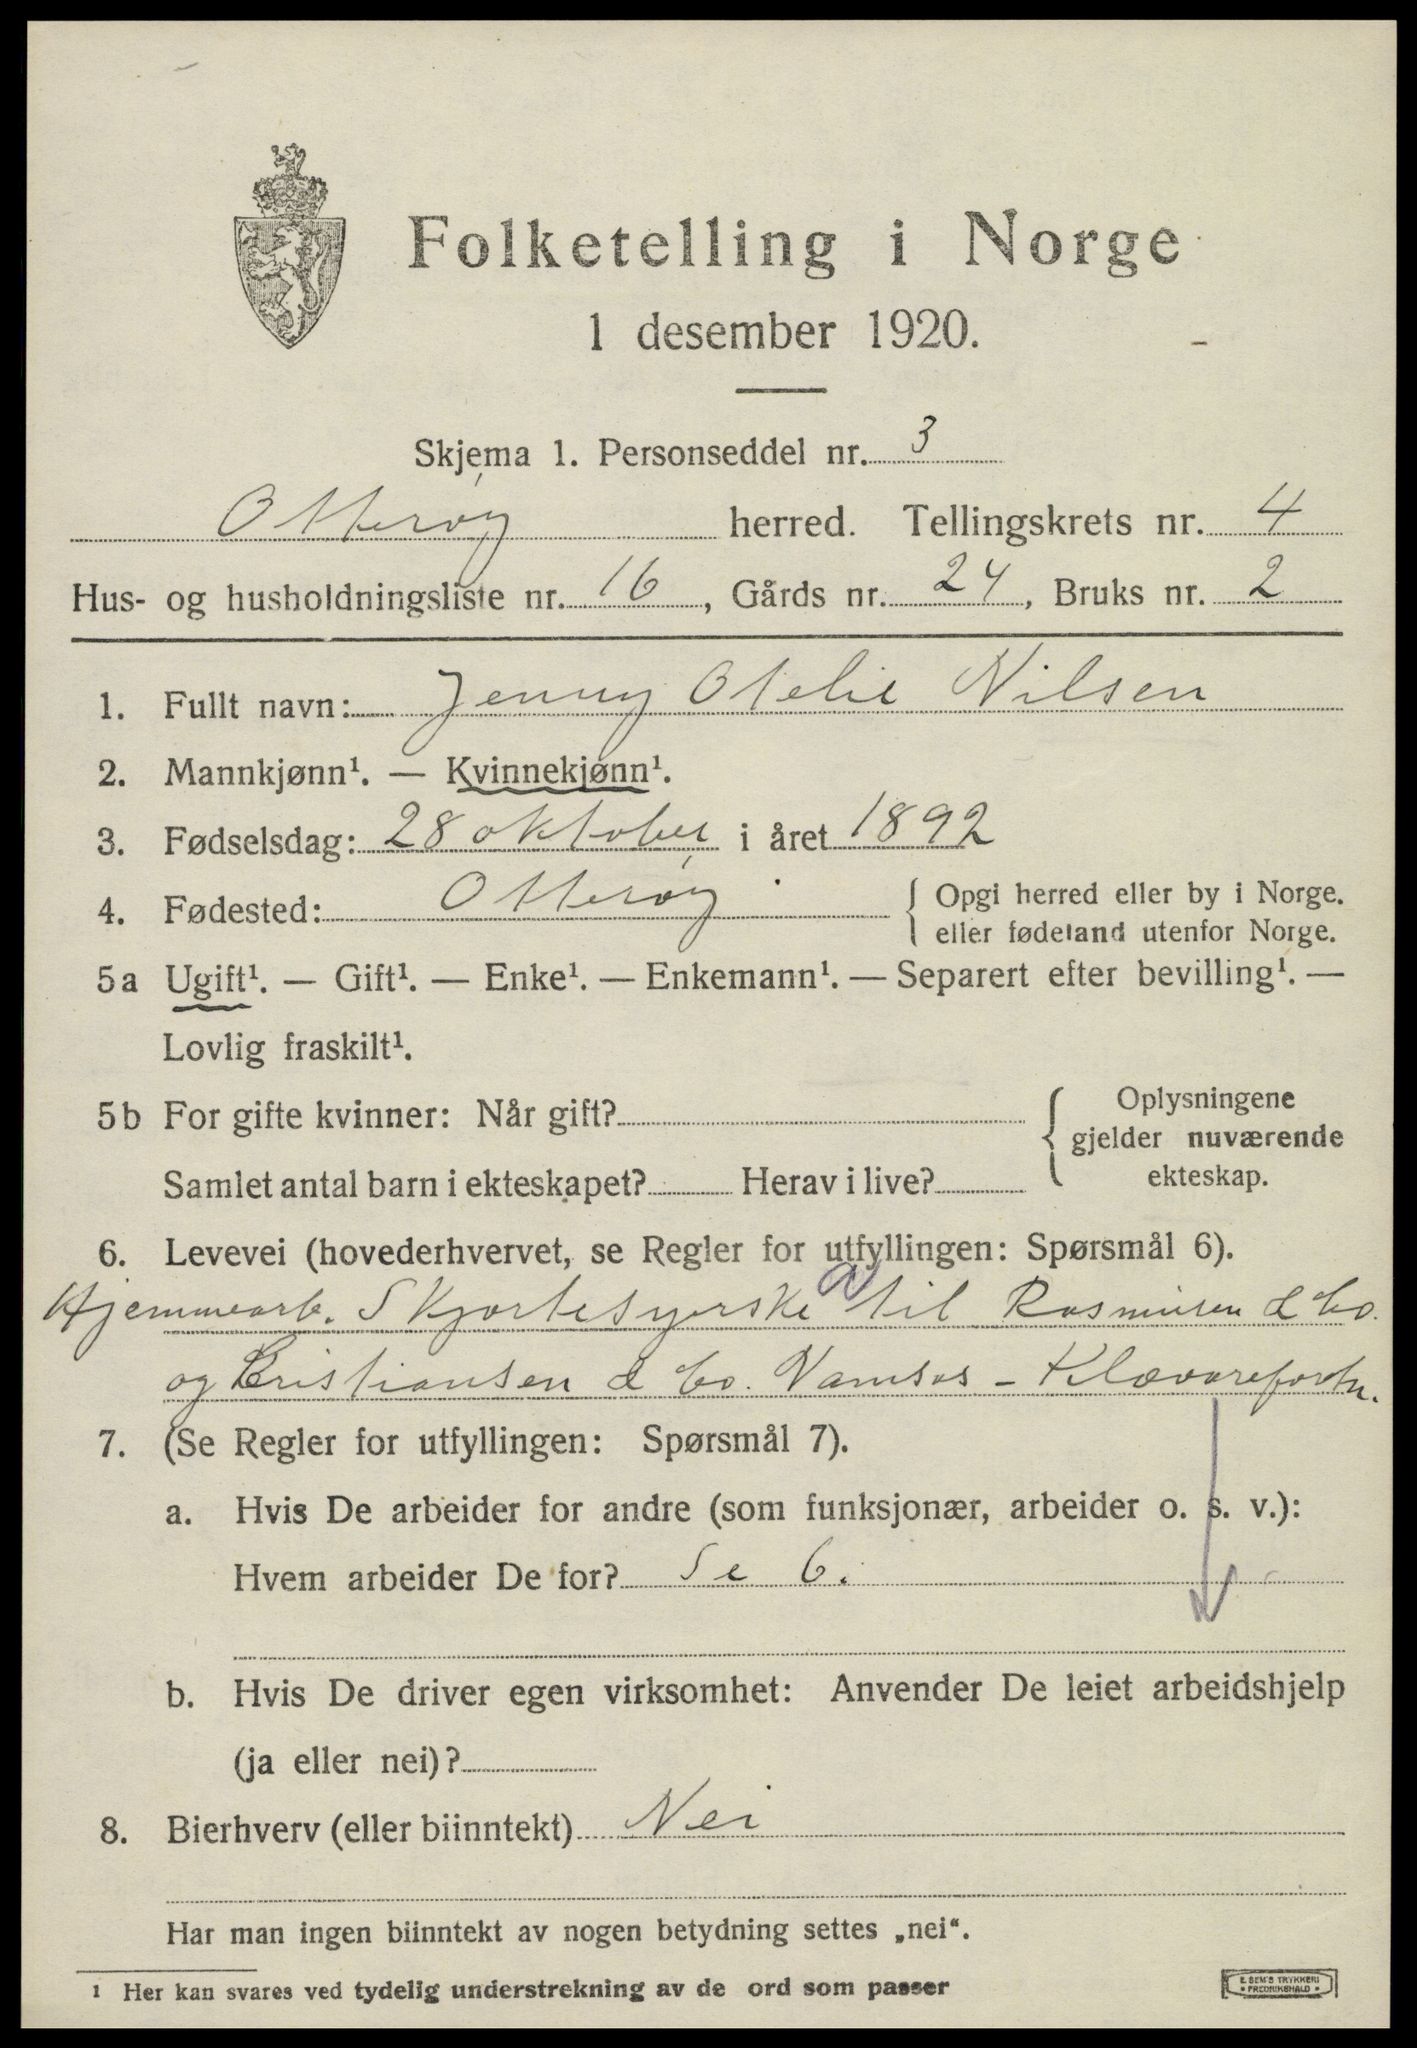 Folketelling i Norge
1 desember 1920.
Skjema 1. Personseddel nr. 3
Otterøy herred. Tellingskrets nr. 4
Hus- og husholdningsliste nr. 16, Gårds nr. 24, Bruks nr. 2
1. Fullt navn: Jenny Otelie Nilsen
2. Mannkjønn¹. — Kvinnekjønn¹.
3. Fødselsdag: 28 oktober i året 1892
4. Fødested: Otterøy { Opgi herred eller by i Norge.
eller fødeland utenfor Norge.
5a Ugift¹. — Gift¹. — Enke¹. — Enkemann¹. — Separert efter bevilling¹. —
Lovlig fraskilt¹.
5b For gifte kvinner: Når gift? { Oplysningene
gjelder nuværende
ekteskap.
Samlet antal barn i ekteskapet? Herav i live?
6. Levevei (hovederhvervet, se Regler for utfyllingen: Spørsmål 6).
Hjemmearb. Skjortesyerske til Rasmusen & Co.
og Cristiansen & Co. Namsos –
7. (Se Regler for utfyllingen: Spørsmål 7).
a. Hvis De arbeider for andre (som funksjonær, arbeider o. s. v.):
Hvem arbeider De for? Se 6.
b. Hvis De driver egen virksomhet: Anvender De leiet arbeidshjelp
(ja eller nei)?
8. Bierhverv (eller biinntekt) Nei
Har man ingen biinntekt av nogen betydning settes „nei“.
¹ Her kan svares ved tydelig understrekning av de ord som passer
E. SEM'S TRYKKERI
FREDRIKSHALD